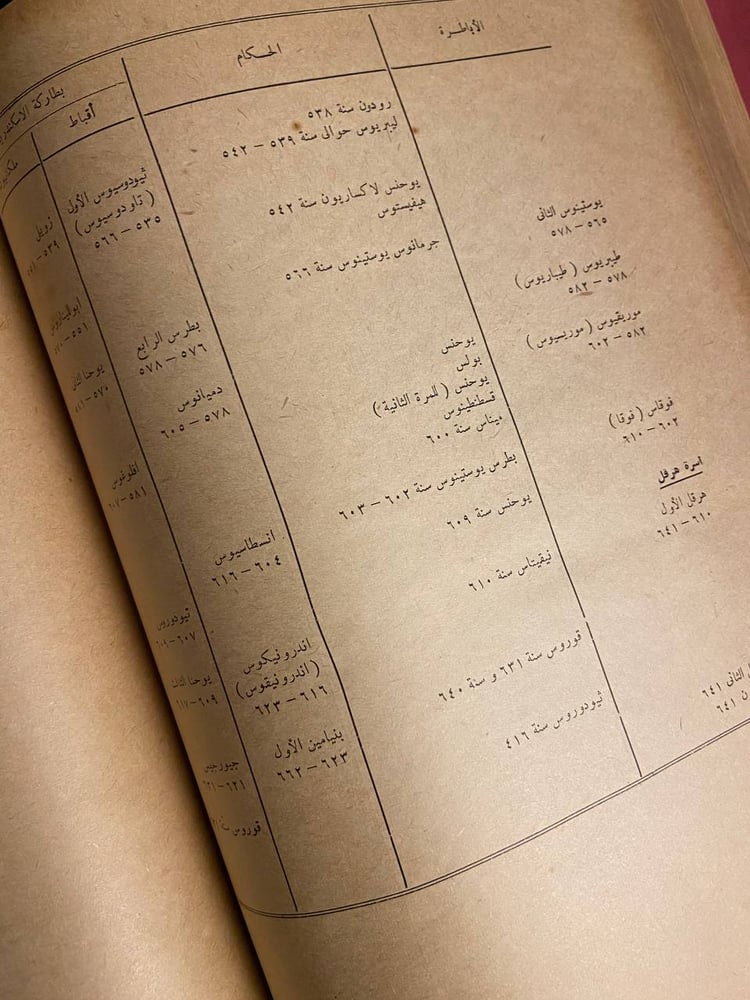 الأباطرة
يوستينوس الثانى
٥٦٥ – ٥٧٨
طيبريوس ( طيباريوس )
٥٧٨ – ٥٨٢
موريقيوس ( موريسيوس )
٥٨٢ – ٦٠٢
فوقاس ( فوقا )
٦٠٢ – ٦١٠
اسرة هرقل
هرقل الأول
٦١٠ – ٦٤١
الثانى ٦٤١
ن ٦٤١
الحكام
رودون سنة ٥٣٨
ليبريوس حوالى سنة ٥٣٩ – ٥٤٢
يوحنس لاكساريون سنة ٥٤٢
هيفيستوس
جرمانوس يوستينوس سنة ٥٦٦
يوحنس
بولس
يوحنس ( للمرة الثانية )
قسطنطينوس
ميناس سنة ٦٠٠
بطرس يوستينوس سنة ٦٠٢ – ٦٠٣
يوحنس سنة ٦٠٩
نيقيتاس سنة ٦١٠
قوروس سنة ٦٣١ و سنة ٦٤٠
ثيودوروس سنة ٤١٦
بطاركة الاسكندرية
أقباط
ثيودوسيوس الأول
( تاودوسيوس )
٥٣٥ – ٥٦٦
بطرس الرابع
٥٧٦ – ٥٧٨
دميانوس
٥٧٨ – ٦٠٥
انسطاسيوس
٦٠٤ – ٦١٦
اندرونيكوس
( اندرونيقوس )
٦١٦ – ٦٢٣
بنيامين الأول
٦٢٣ – ٦٦٢
زويل
ابوليناريوس
٥٥١ –
يوحنا الثانى
٥٧٠ –
افلوغوس
٥٨١ – ٦٠٧
ثيودوروس
٦٠٧ – ٦٠٩
يوحنا الثالث
٦٠٩ – ٦١٧
جيورجيس
٦٢١ – ٦٣١
قوروس